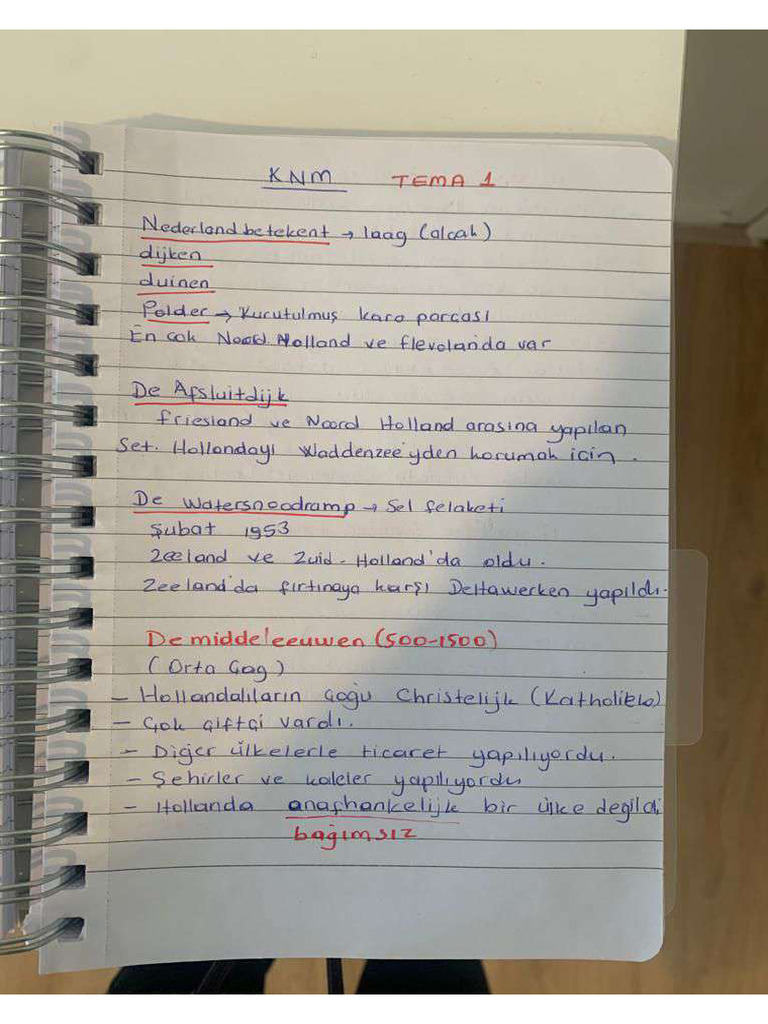 KNM TEMA 1
Nederland betekent → laag (alçak)
dijken
duinen
Polder → Kurutulmuş kara parcası
En çok Noord Holland ve flevolanda var
De Afsluitdijk
friesland ve Noord Holland arasına yapılan
Set. Hollandayı Waddenzee'yden korumak için.
De Watersnoodramp → Sel felaketi
Şubat 1953
Zeeland ve Zuid-Holland'da oldu.
Zeeland'da fırtınaya karşı Deltawerken yapıldı.
De middeleeuwen (500-1500)
(Orta Çağ)
- Hollandalıların çoğu Christelijk (Katholiek)
- Çok çiftçi vardı.
- Diğer ülkelerle ticaret yapılıyordu.
- Şehirler ve kaleler yapılıyordu
- Hollanda anafhankelijk bir ülke değildi
bağımsız